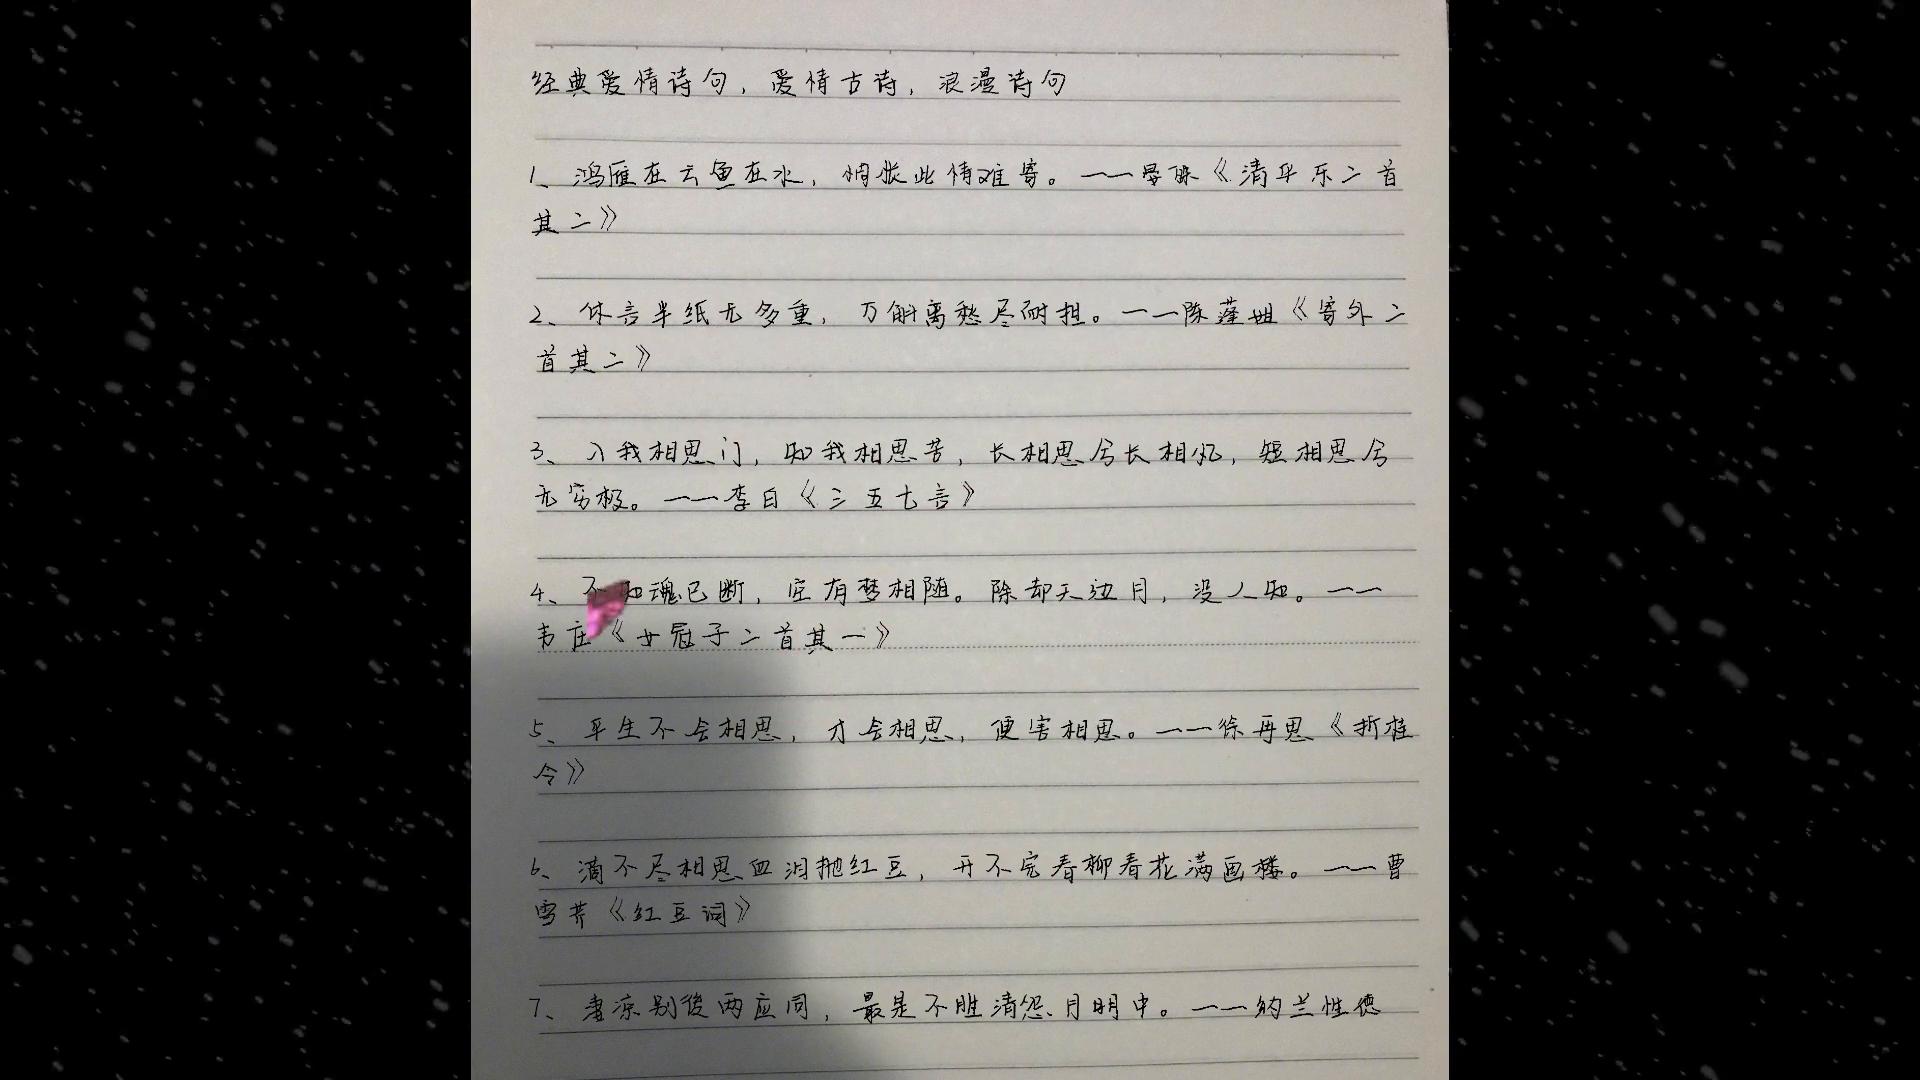 经典爱情诗句，爱情古诗，浪漫诗句
1、鸿雁在云鱼在水，惆怅此情难寄。——晏殊《清平乐二首
其二》
2、休言半纸无多重，万斛离愁尽耐担。——陈蓬姐《寄外二
首其二》
3、入我相思门，知我相思苦，长相思兮长相忆，短相思兮
无穷极。——李白《三五七言》
4、不知魂已断，空有梦相随。除却天边月，没人知。——
韦庄《女冠子二首其一》
5、平生不会相思，才会相思，便害相思。——徐再思《折桂
令》
6、滴不尽相思血泪抛红豆，开不完春柳春花满画楼。——曹
雪芹《红豆词》
7、凄凉别後两应同，最是不胜清怨月明中。——纳兰性德